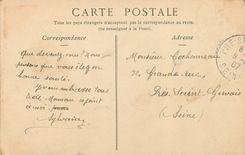 CARTE POSTALE
Tous les pays étrangers n'acceptent pas la correspondance au recto.
(Se renseigner à la Poste).
Correspondance
Adresse
Que devenez vous? Nous
pensons que vous êtes en
bonne santé.
Je vous embrasse tous
Maman
Sylvaine
Monsieur
32 Grande rue
Près Saint Gervais
(Seine)